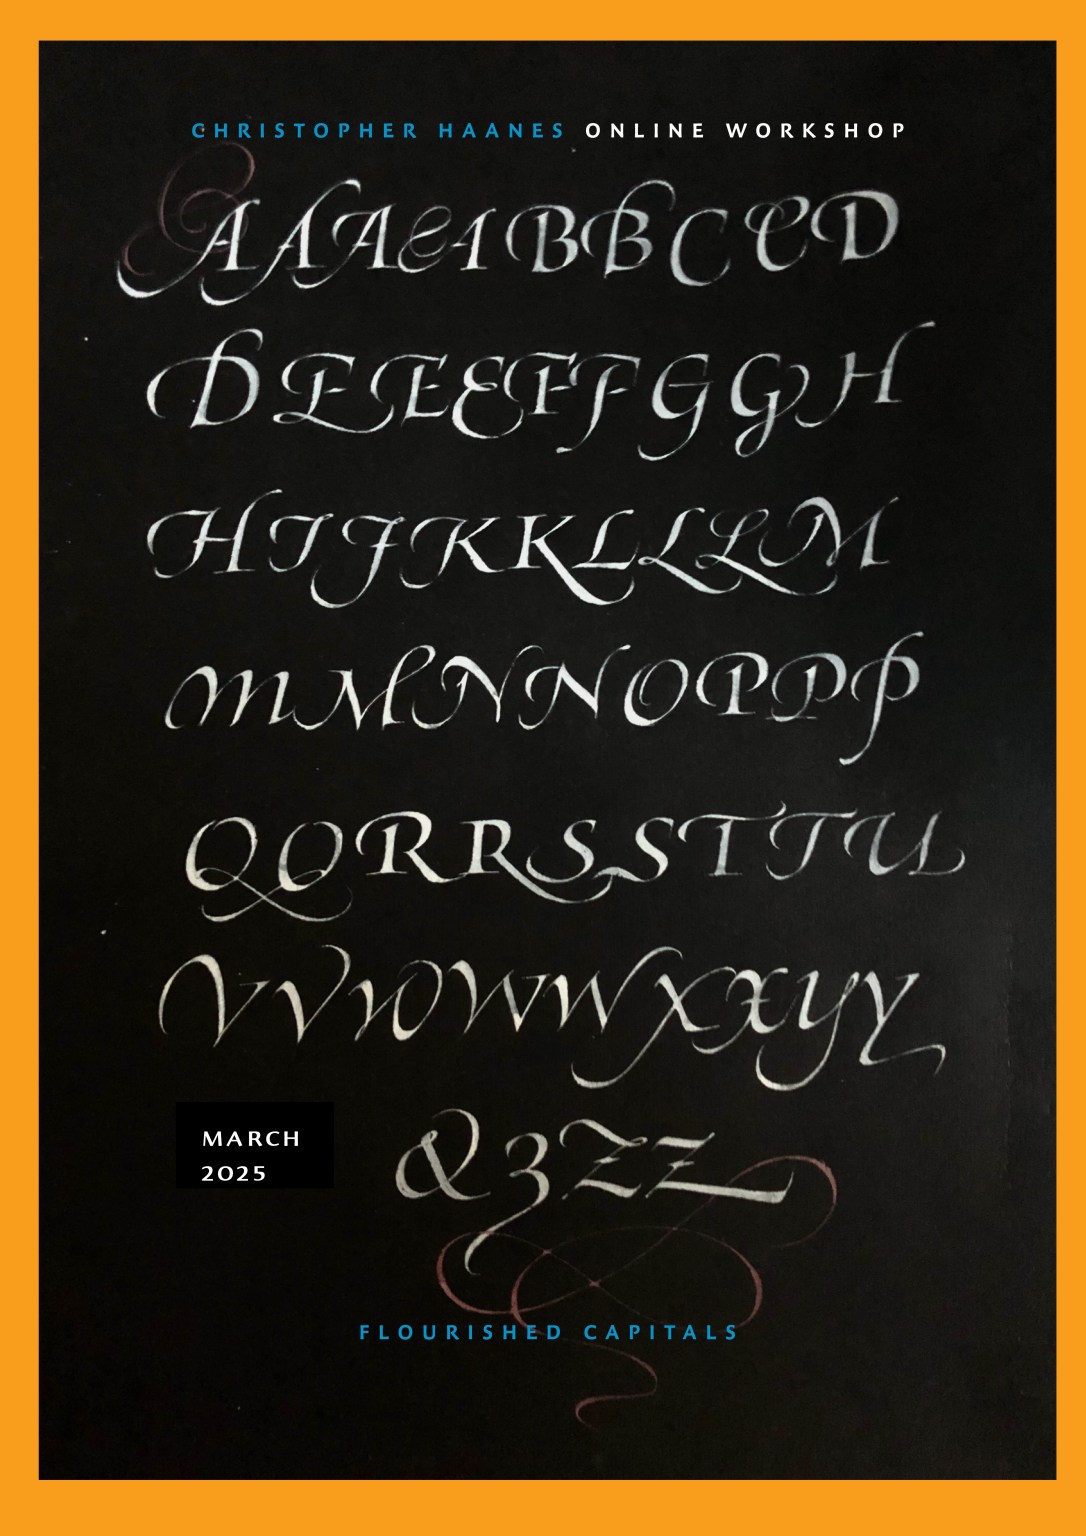 CHRISTOPHER HAANES ONLINE WORKSHOP
AAAABBCCD
DEEEFFGGH
HIJKKLLLM
MMNNOPPP
QQRRSSTTU
VVVOWWXXYY
MARCH
2025
&3ZZ
FLOURISHED CAPITALS